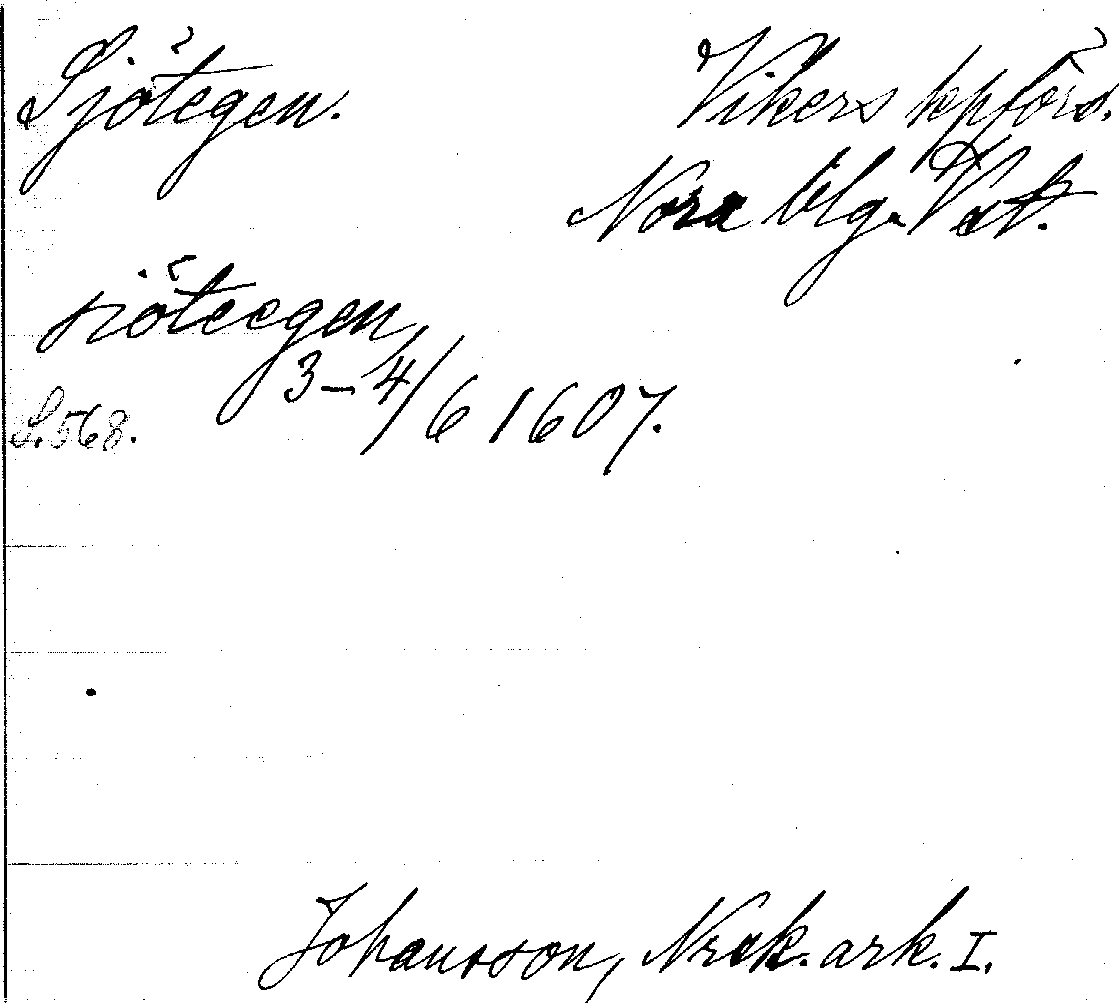 Sjötegen. Vikers kpförs.
Nora blg. Vstm.
siöteegen,
3-4/6 1607.
S. 568.
Johansson, Nrek. ark. I.